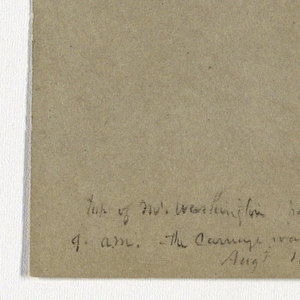 Top of Mt. Washington
9. a.m. the Carriage
Aug